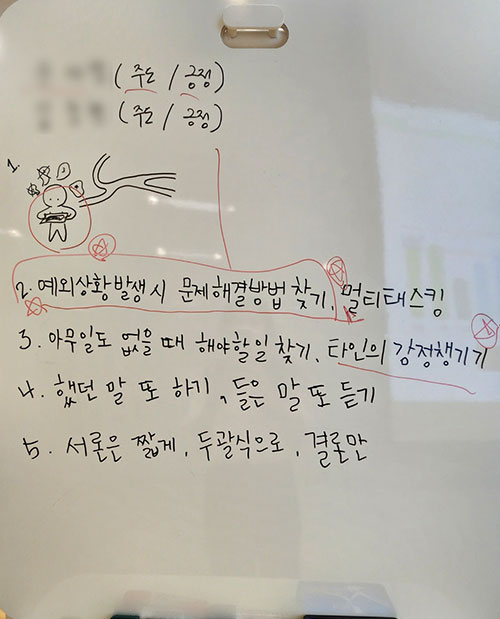 (주도 / 긍정)
(주도 / 긍정)
1.
2. 예외상황발생시 문제해결방법 찾기, 멀티태스킹
3. 아무일도 없을 때 해야할일 찾기, 타인의 강정챙기기
4. 했던 말 또 하기, 들은 말 또 듣기
5. 서론은 짧게, 두괄식으로, 결론만